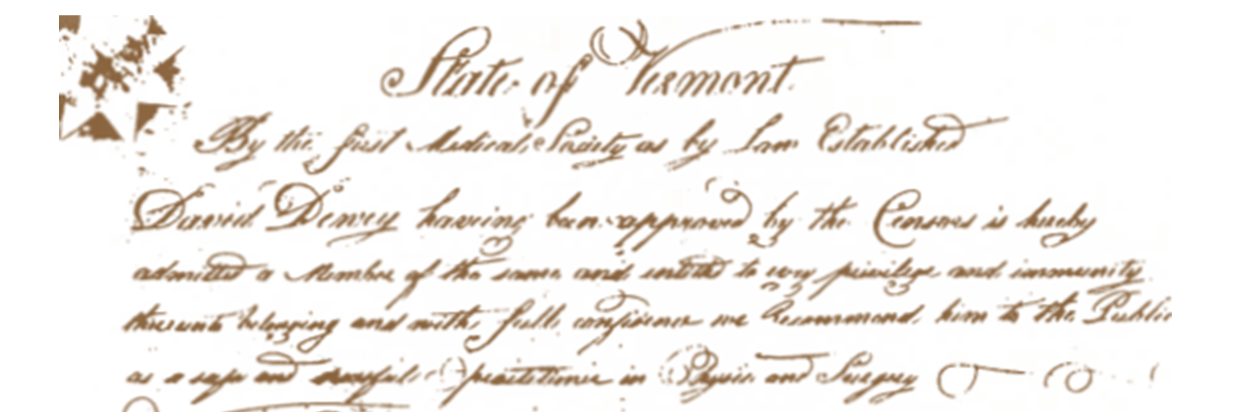 State of Vermont.
By the first Medical Society as by Law Established
David Dewey having been approved by the Censors is hereby
admitted a Membre of the same and intitld to evry privilege and immunity
thereunto belonging and with full confidence we Recommend him to the Public
as a safe and usefull practitioner in Physic and Surgery